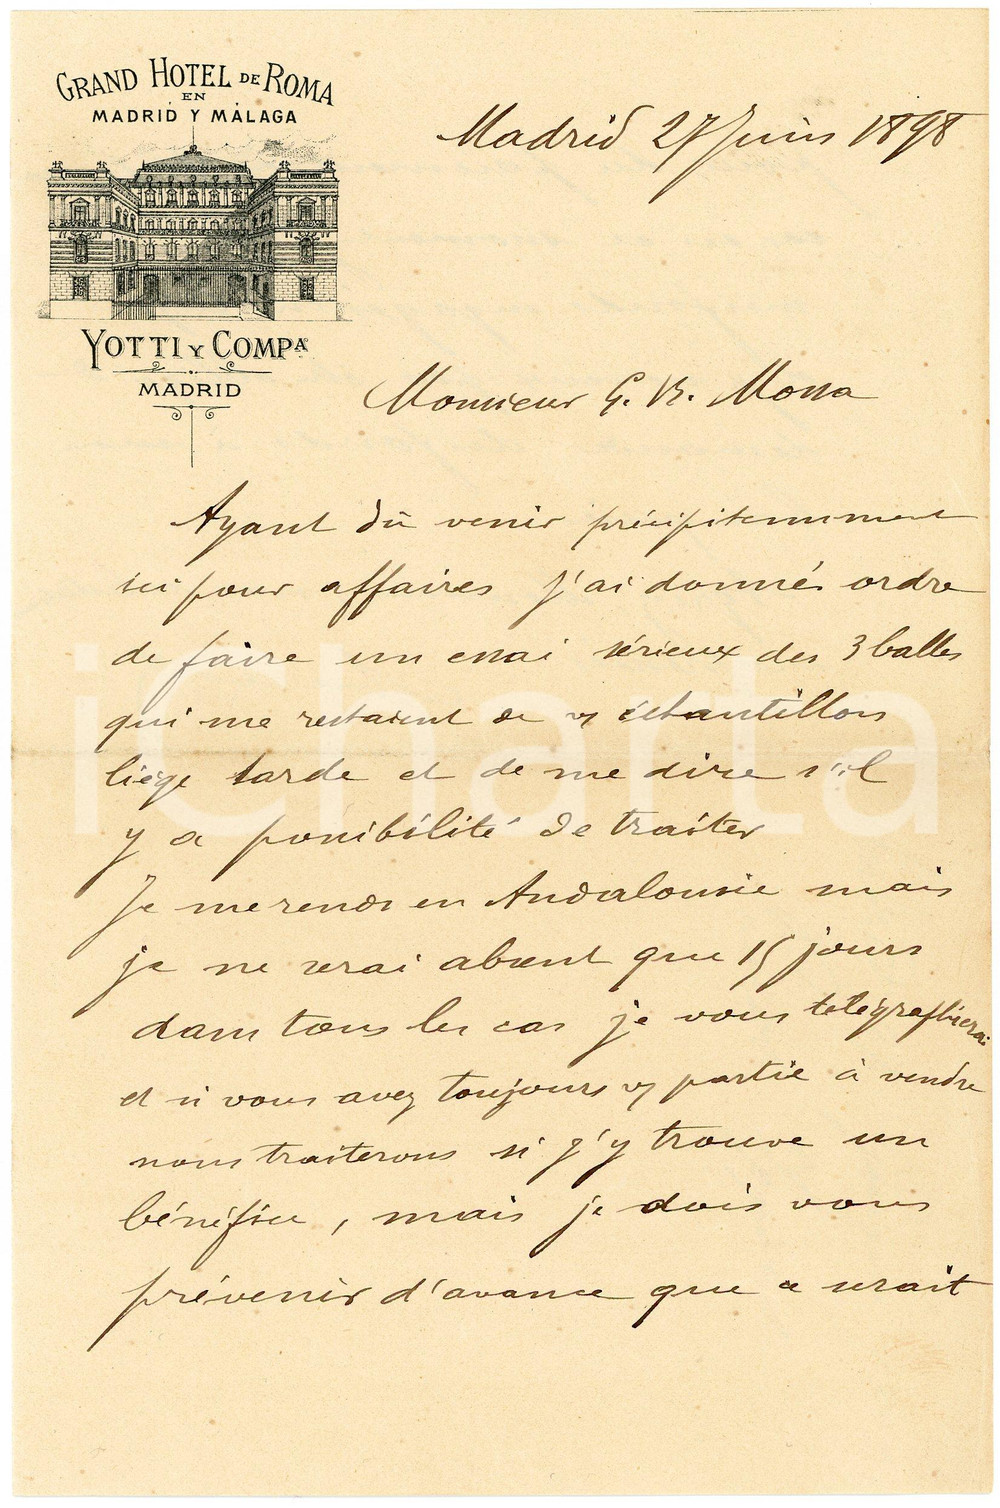 GRAND HOTEL DE ROMA
EN
MADRID Y MÁLAGA
YOTTI Y COMPª
MADRID
Madrid 27 Juin 1898
Monsieur G. B. Mossa
Ayant dû venir précipitemment
ici pour affaires j'ai donnés ordre
de faire un essai sérieux des 3 balles
qui me restaient de vs échantillons
liège tarde et de me dire s'il
y a possibilité de traiter
Je me rends en Andalousie mais
je ne serai absent que 15 jours
dans tous les cas je vous télégraphierai
et si vous avez toujours vs partie à vendre
nous traiterons si j'y trouve un
bénéfice, mais je dois vous
prévenir d'avance que ce serait
iCharta